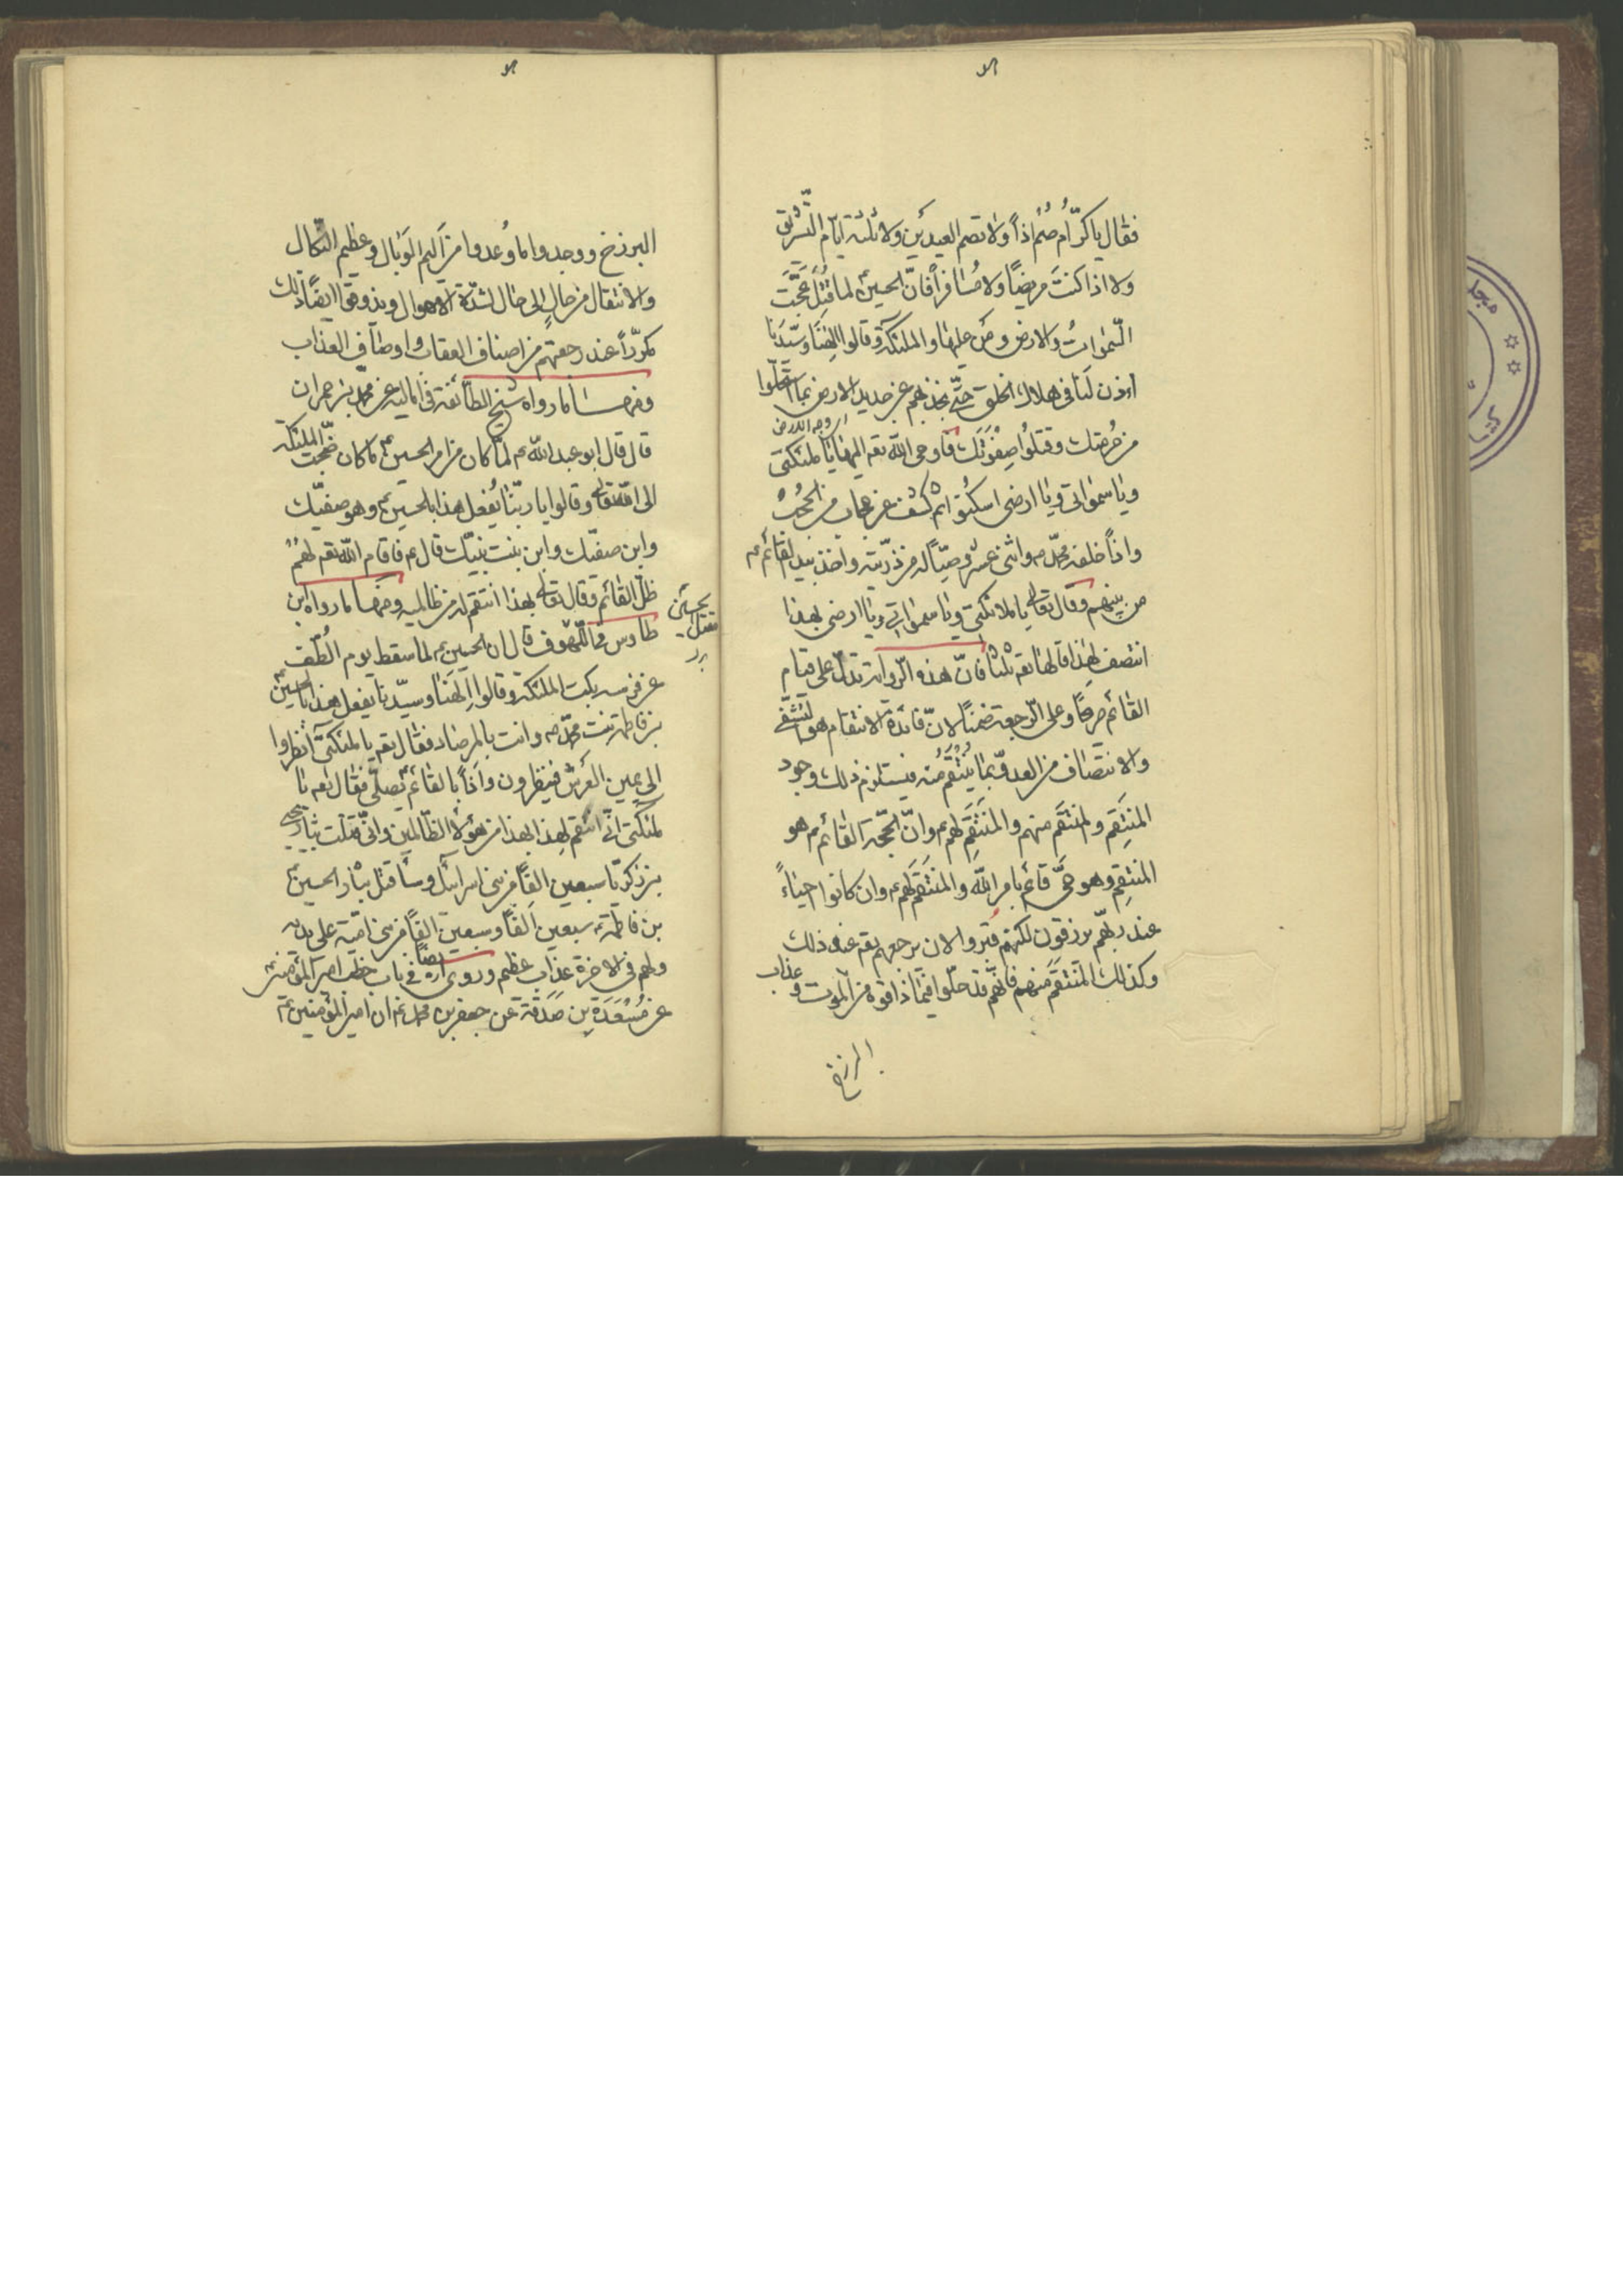 فقال يا كرّام صُم اذاً ولا تصم العيدين ولا ثلثة ايّام التّشريق
ولا اذا كنتَ مريضًا ولا مُسافراً فانّ الحسينؑ لما قُتِلَ عَجَّتِ
السّمٰواتُ والارض ومَن عليها والملئكة وقالوا الٰهنَا وسيّدنا
اءذن لَنا فى هلاك الخلق حتّى نجذهم عن جديد الارض بما استحلّوا
اى وجه الارض
من حُرمتك وقتلوُا صِفْوَتَكَ فاوحى اللّه تعه اليهم يا ملئكتى
ويا سمواتى ويا ارضى اسكنُوا ثم كشف عن حجاب من الحُجُب
واذاً خلفه محمّد ص واثنى عشر وصيّاً له من ذرّيته واخذ بيد القائم ع
من بينهم وقال تعالى يا ملائكتى ويا سمواتى ويا ارضى بهذا
انتصف لهٰذا قالها تعه ثلثا فانّ هذه الرّواية تدلّ على قيام
القائم صرحًا وعلى الرّجعة ضمنًا لانّ فائدة الانتقام هو التشفّى
والانتصاف من العدوّ بما يُنْتَقَمُ منه فيستلزم ذلك وجود
المنتَقِم والمنتقَم منهم والمُنتَقَمِ لهم ع وانّ الحجّة القائم ع هو
المنتقِم وهو حىّ قائم بامر اللّه والمنتَقَم لهم ع وان كانوا احياءً
عند ربّهم يرزقون لكنهم قبروا الان يرجعهم تعه عند ذلك
وكذلك المنتقَم منهم فانّهم قد حلّوا فيما ذاقوه من الموت وعذاب
البرزخ
البرزخ ووجدوا ما وُعدوا من اليم الوبال وعظيم النّكال
والانتقال من حالٍ الى حال لشدّة الاهوال ويذوقوا ايضاً ذلك
مُكرّراً عند رجعتهم من اصناف العقاب واوصاف العذاب
ومنها ما رواه شيخ الطائفة فى اماليه عن محمّد بن حمران
قال قال ابو عبد اللّه ع لما كان من امر الحسينؑ ما كان ضجّت الملئكة
الى اللّه تعالى وقالوا يا ربّنا يُفعل هذا بالحسينؑ وهو صفيّك
وابن صفيّك وابن بنت نبيّك قال ع فاقام اللّه تعه لهم
ظلّ القائم وقال تعالى بهذا انتقم له من ظالميه ومنها ما رواه ابن
طاوس فى اللّهوف قال ان الحسين ع لما سقط يوم الطّف
عن فرسه بكت الملئكة وقالوا الٰهنَا وسيّدنا يفعل هذا بالحسينؑ
بن فاطمة بنت محمّد ص وانت بالمرصاد فقال تعه يا ملئكتى انظروا
الى يمين العرش فينظرون واذاً بالقائم يصلّى فقال تعه يا
ملئكتى انّى انتقم لهذا بهذا من هؤلاء الظّالمين وانّى قتلت بثار يحيى
بن زكريّا سبعين الفًا من بنى اسرائيل وساقتل بثار الحسينؑ
بن فاطمة سبعين الفًا وسبعين الفًا من بنى اميّة على يديه
ولهم فى الاخرة عذاب عظيم وروى ايضاً فى باب خطب امير المؤمنينؑ
عن مَسْعَدَةِ بن صَدَقَة عن جعفر بن محمّد ع ان امير المؤمنينؑ